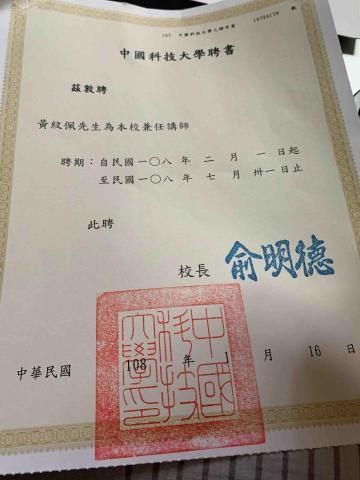 107 中國科技大學人聘字書 10704170 號
中國科技大學聘書
茲敦聘
黃紋佩先生為本校兼任講師
聘期：自民國一〇八年 二 月 一日起
至民國一〇八年 七 月 卅一日止
此聘
校長 俞明德
中國科技大學印
中華民國 108 年 1 月 16 日